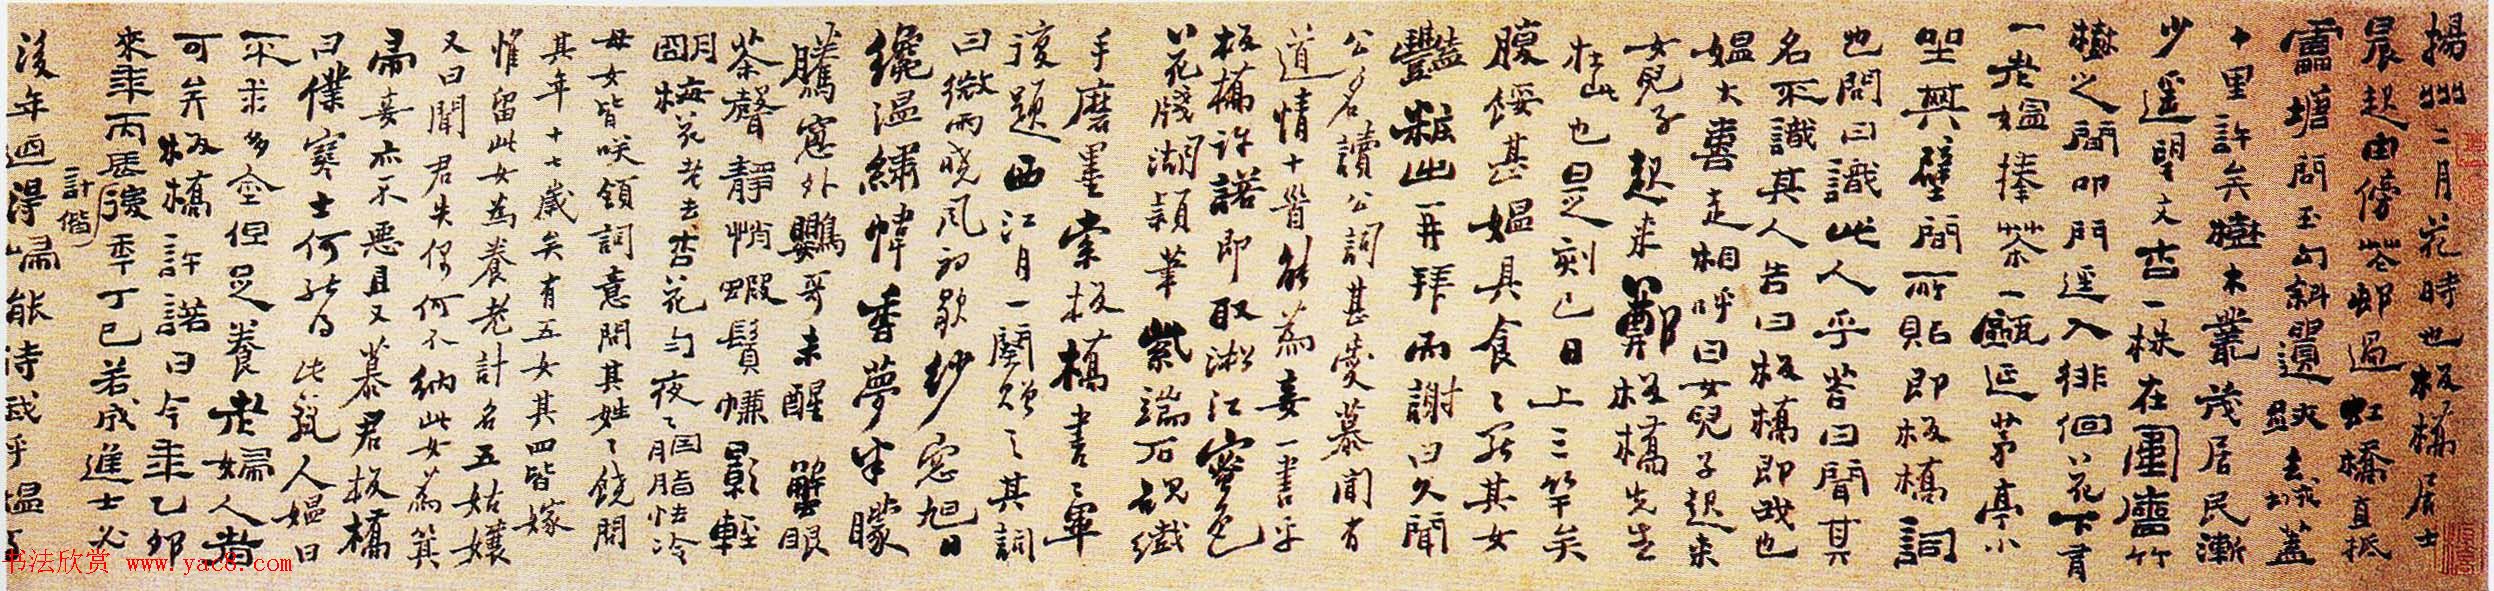 揚州二月花時也板橋居士
晨起由傍花邨過虹橋直抵
雷塘問玉勾斜遺跡去城蓋
十里許矣樹木叢茂居民漸
少遥望文杏一株在圍牆竹
樹之間叩門逕入徘徊花下有
一老媼捧茶一甌延茅亭小
坐其壁間所貼即板橋詞
也問曰識此人乎荅曰聞其
名不識其人告曰板橋即我也
媼大喜走相呼曰女兒子起来
女兒子起来鄭板橋先生
在此也是刻已日上三竿矣
腹餒甚媼具食食罷其女
豔粧出再拜而謝曰久聞
公名讀公詞甚愛慕聞有
道情十首能為妾一書乎
板橋許諾即取淞江蜜色
花牋湖頴筆紫端石硯纖
手磨墨索板橋書書畢
復題西江月一闋贈之其詞
曰微雨曉風初歇紗窓旭日
纔温繡幃香夢半朦
騰窓外鸚哥未醒蟹眼
茶聲靜悄蝦鬚㡘影輕
明梅花老去杏花勻夜夜胭脂怯冷
母女皆笑領詞意問其姓姓饒問
其年十七歲矣有五女其四皆嫁
惟留此女為養老計名五姑孃
又曰聞君失偶何不納此女為箕
帚妾亦不惡且又慕君板橋
曰僕寒士何能得此麗人媼曰
不求多金但足養老婦人者
可矣板橋許諾曰今年乙卯
來年丙辰後年丁巳若成進士必
計偕
後年迺得歸能待我乎媼
书法欣赏 www.yac8.com